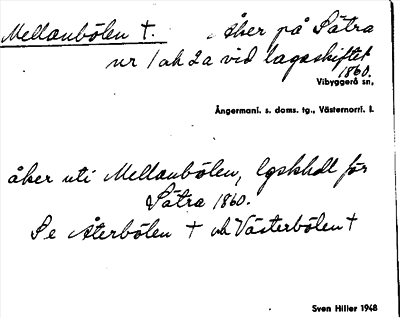 Mellanbölen †. Åker på Sätra
nr 1 och 2a vid lagaskiftet
1860.
Vibyggerå sn,
Ångermanl. s. doms. tg., Västernorrl. l.
åker uti Mellanbölen, lgskhdl för
Sätra 1860.
Se Återbölen † och Västerbölen †
Sven Hiller 1948